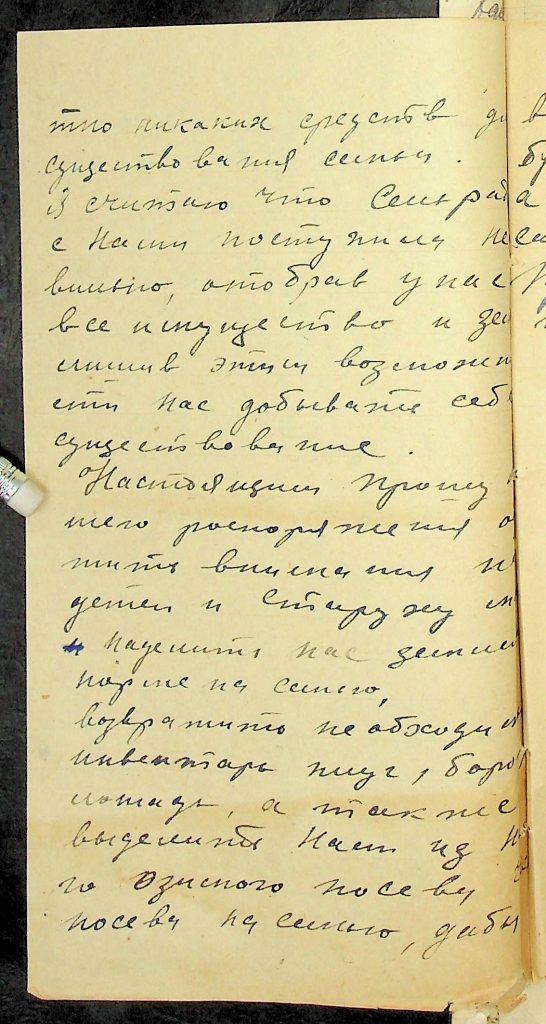 тно никаких средств дл
существования семьи.
Я считаю что Сельрад
с Нами поступила не
вильно, отобрав у нас
все имущество и зе
лишив этим возможн
сти нас добывать себе
существование.
Настоящим прошу
шего роспоряжения о
тить внимания н
детей и Старуху м
и наделить нас землей
норме на семью,
возвратить необходим
инвентарь плуг, боро
лошадь, а также
выделить Нам из
го озимого посева
посева на семью, дабы